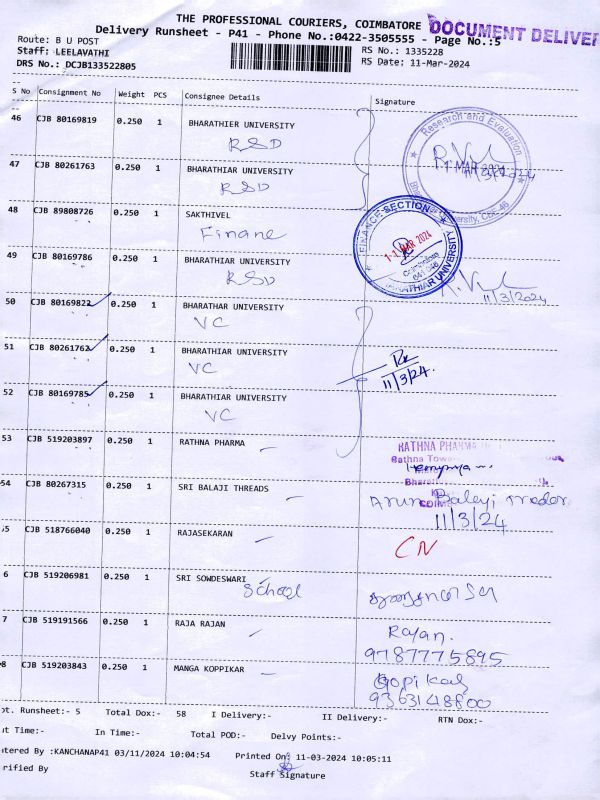 THE PROFESSIONAL COURIERS, COIMBATORE
DOCUMENT DELIVER
Delivery Runsheet - P41 - Phone No.:0422-3505555 - Page No.:5
Route: B U POST
RS No.: 1335228
Staff: LEELAVATHI
RS Date: 11-Mar-2024
DRS No.: DCJB133522805
S No Consignment No Weight PCS Consignee Details Signature
46 CJB 80169819 0.250 1 BHARATHIER UNIVERSITY
RSD
Research and Evaluation
11/3/2024
47 CJB 80261763 0.250 1 BHARATHIAR UNIVERSITY
RSD
48 CJB 89808726 0.250 1 SAKTHIVEL
Finane
FINANCE-SECTION
11 MAR 2024
Coimbatore
641 046
BHARATHIAR UNIVERSITY
49 CJB 80169786 0.250 1 BHARATHIAR UNIVERSITY
RSD
11/3/2024
50 CJB 80169822 0.250 1 BHARATHAR UNIVERSITY
VC
51 CJB 80261762 0.250 1 BHARATHIAR UNIVERSITY
VC
11/3/24.
52 CJB 80169785 0.250 1 BHARATHIAR UNIVERSITY
VC
53 CJB 519203897 0.250 1 RATHNA PHARMA
RATHNA PHARMA
Rathna Tower
54 CJB 80267315 0.250 1 SRI BALAJI THREADS
Arun Balayi Trader
11/3/24
55 CJB 518766040 0.250 1 RAJASEKARAN
CN
6 CJB 519206981 0.250 1 SRI SOWDESWARI
School
7 CJB 519191566 0.250 1 RAJA RAJAN
Rajan.
9787775895
8 CJB 519203843 0.250 1 MANGA KOPPIKAR
Gopikas
9363148800
ot. Runsheet:- 5 Total Dox:- 58 I Delivery:- II Delivery:- RTN Dox:-
ut Time:- In Time:- Total POD:- Delvy Points:-
ntered By :KANCHANAP41 03/11/2024 10:04:54 Printed On: 11-03-2024 10:05:11
rified By
Staff Signature